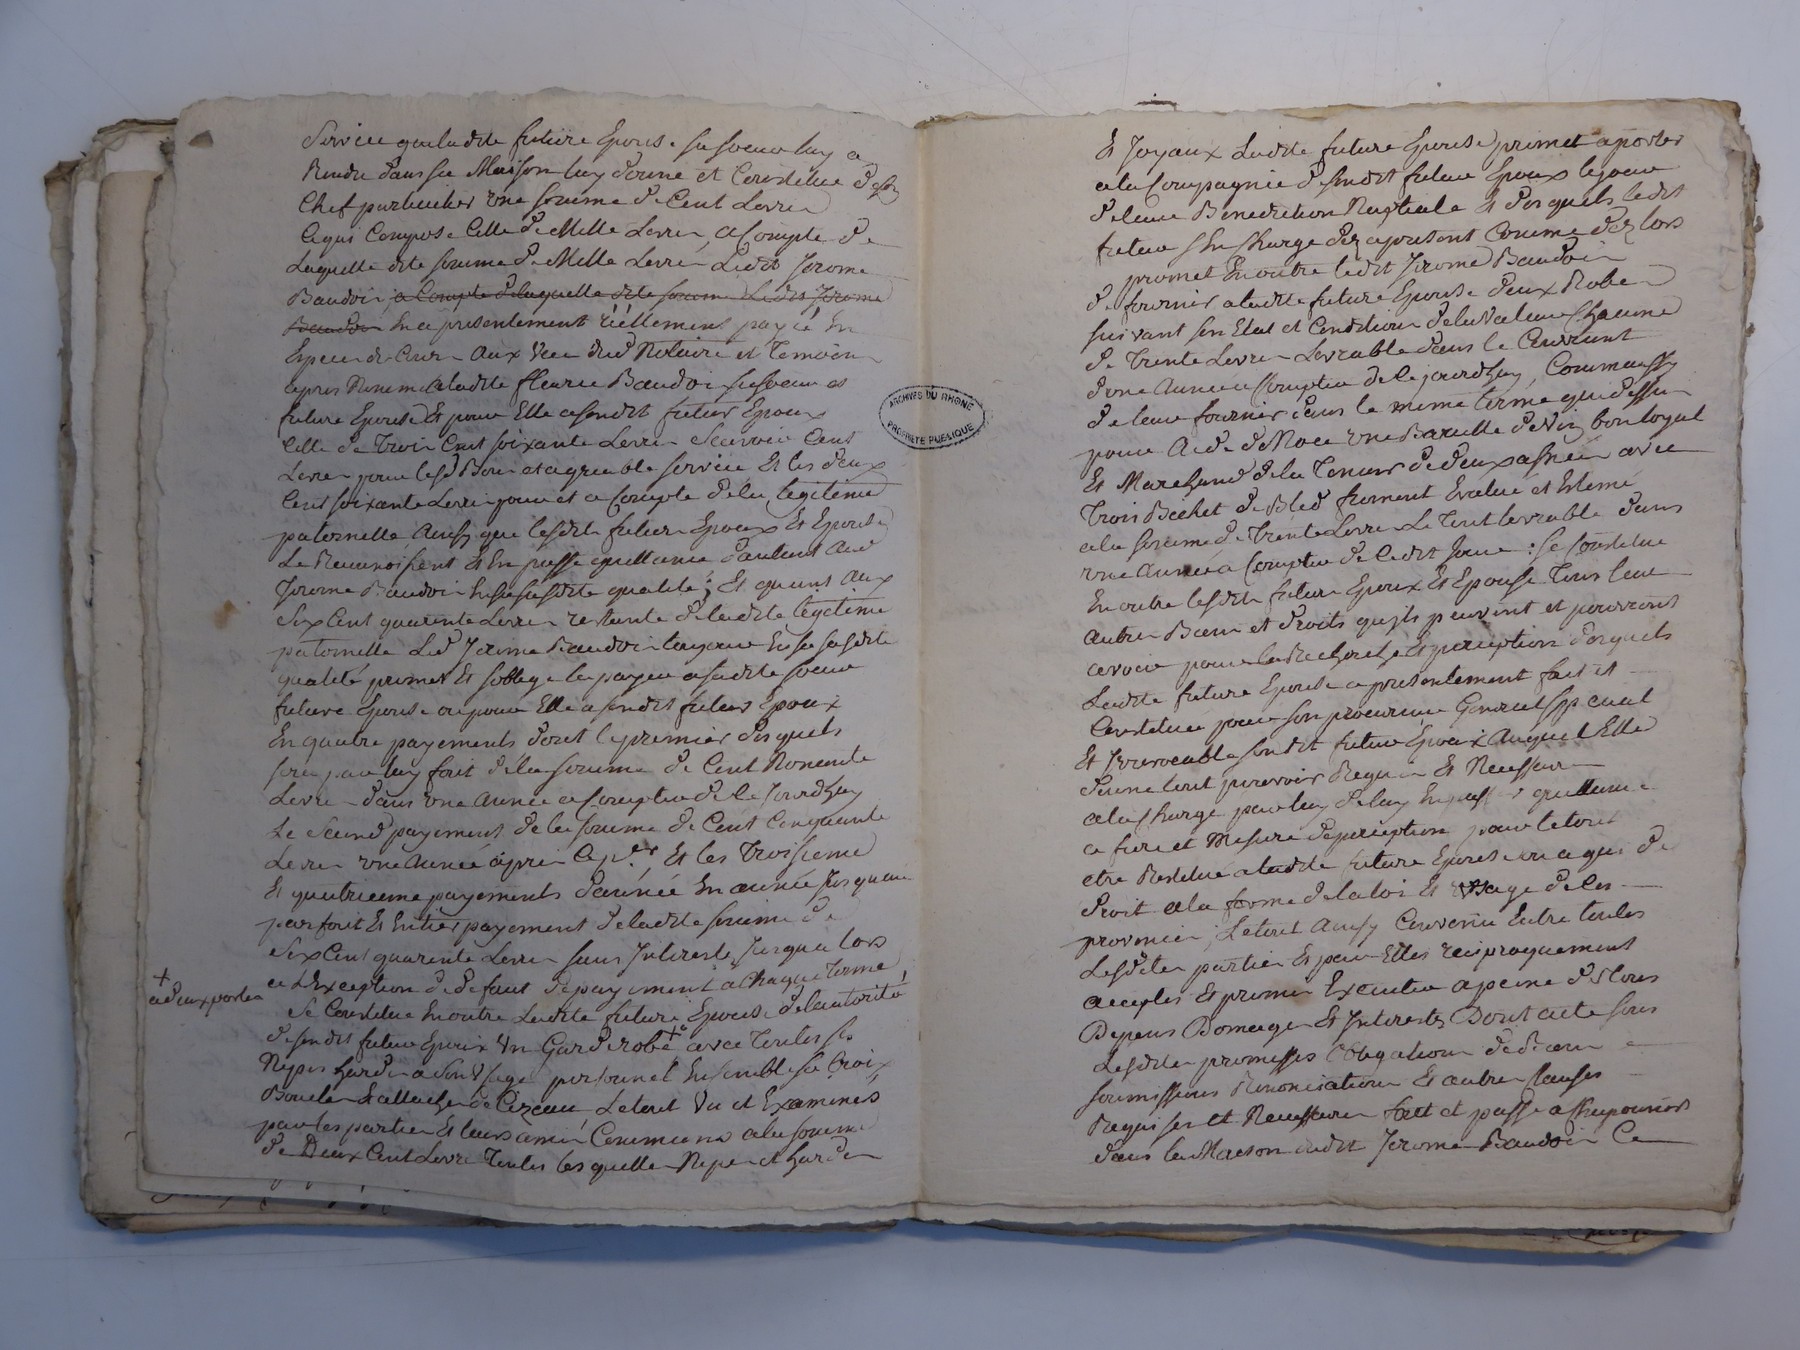 Service que ladite future Epouse sa soeur luy a
Rendu dans sa Maison luy donne et Constitue de son
Chef particulier une somme de Cent Livres
Ce qui Compose Celle de Mille Livres, a Compte de
Laquelle dite somme de Mille Livres Ledit Jerome
Baudoi a Compte de laquelle dite somme Ledit Jerome
Baudoi En a presentement réellement payé En
Especes de Cours Aux Vue dud Notaire et Temoins
apres Numeré A ladite fleurie Baudoi sa soeur et
future Epouse Et pour Elle a sondit futur Epoux
Celle de Trois Cent soixante Livres scavoir Cent
Livres pour lesd Bons et agreable service Et les deux
Cent soixante Livres pour et a Compte de la Legitime
paternelle, Ainsy que lesdits futurs Epoux Et Epouse
Le Reconnoissent Et En passe quittance d'autant Aud
Jerome Baudoi En sa susdite qualité; Et quant aux
Six Cent quarente Livres restante de ladite Legitime
paternelle Led Jerome Baudoi En sa susdite
qualité promet Et soblige la payer a sadite soeur
future Epouse ou pour Elle a sondit futur Epoux
En quatre payements dont le premier desquels
sera par luy fait de la somme de Cent Nonente
Livres dans une Année a Compter de Ce Jourdhuy
Le Second payement de la somme de Cent Cinquante
Livres une Année apres Ce pr.er Et les Troisieme
Et quatrieme payements d'année En année Jusquau
parfait Et Entier payement de ladite somme de
Six Cent quarente Livres sans Interests Jusqua lors
a L'Exception de defaut de payement a Chaque Terme,
+
a deux portes
Se Constitue En outre Ladite future Epouse de lautorité
de sondit futur Epoux Un Garderobe + avec Toutes ses
Nipes hardes a son Usage personnel Ensemble sa Croix
Boucles Et attaches de Cizeau, Le tout Vu et Examinés
par les parties Et leurs amis Communs a la somme
de Deux Cent Livres Toutes lesquelles Nipes et hardes
Et Joyaux Ladite future Epouse promet aporter
a la Compagnie de sondit futur Epoux le jour
de leur Benediction Nuptiale Et desquels ledit
futur s'En Charge dez apresent Comme dez lors
promet En outre ledit Jerome Baudoi
de fournir a ladite future Epouse deux Robes
suivant son Etat et Condition de la Valeur Chacune
de Trente Livres Livrable dans le Courrant
d'une Année a Compter de Ce jourdhuy, Comme aussy
de leur fournir dans le meme terme que dessus
pour Aide de Noce une Barelle de Vin bon loyal
Et Marchand de la Tenure de deux asnées avec
Trois Bichet de Bled froment Evalué et Estimé
a la somme de Trente Livres Le Tout livrable dans
une Année a Compter de Cedit Jour: se Constitue
En outre lesdits futurs Epoux Et Epouse Tous leur
Autres Biens et droits quils peuvent et pourront
avoir pour la Recherche Et perception desquels
Ladite future Epouse a presentement fait et
Constitue pour son procureur General special
Et Irrevocable sondit futur Epoux Auquel Elle
donne tout pouvoir Requis Et Necessaire
a la Charge par luy de luy En passer quittance
a fure et Mesure de perception pour le tout
etre Restitué a ladite future Epouse ou a qui de
droit a la forme de la loi Et Usage de Ces
provinces; Le tout Ainsy Convenu Entre toutes
Lesdites parties Et par Elles reciproquement
accepté Et promis Executer a peine de tous
Depens Domages Et Interests Dont acte sous
Lesdites promesses obligations de Biens
soumissions Renonciations Et autres Clauses
Requises Et Necessaires fait et passé
dans la Maison dudit Jerome Baudoi Ce
ARCHIVES DU RHONE
PROPRIETE PUBLIQUE